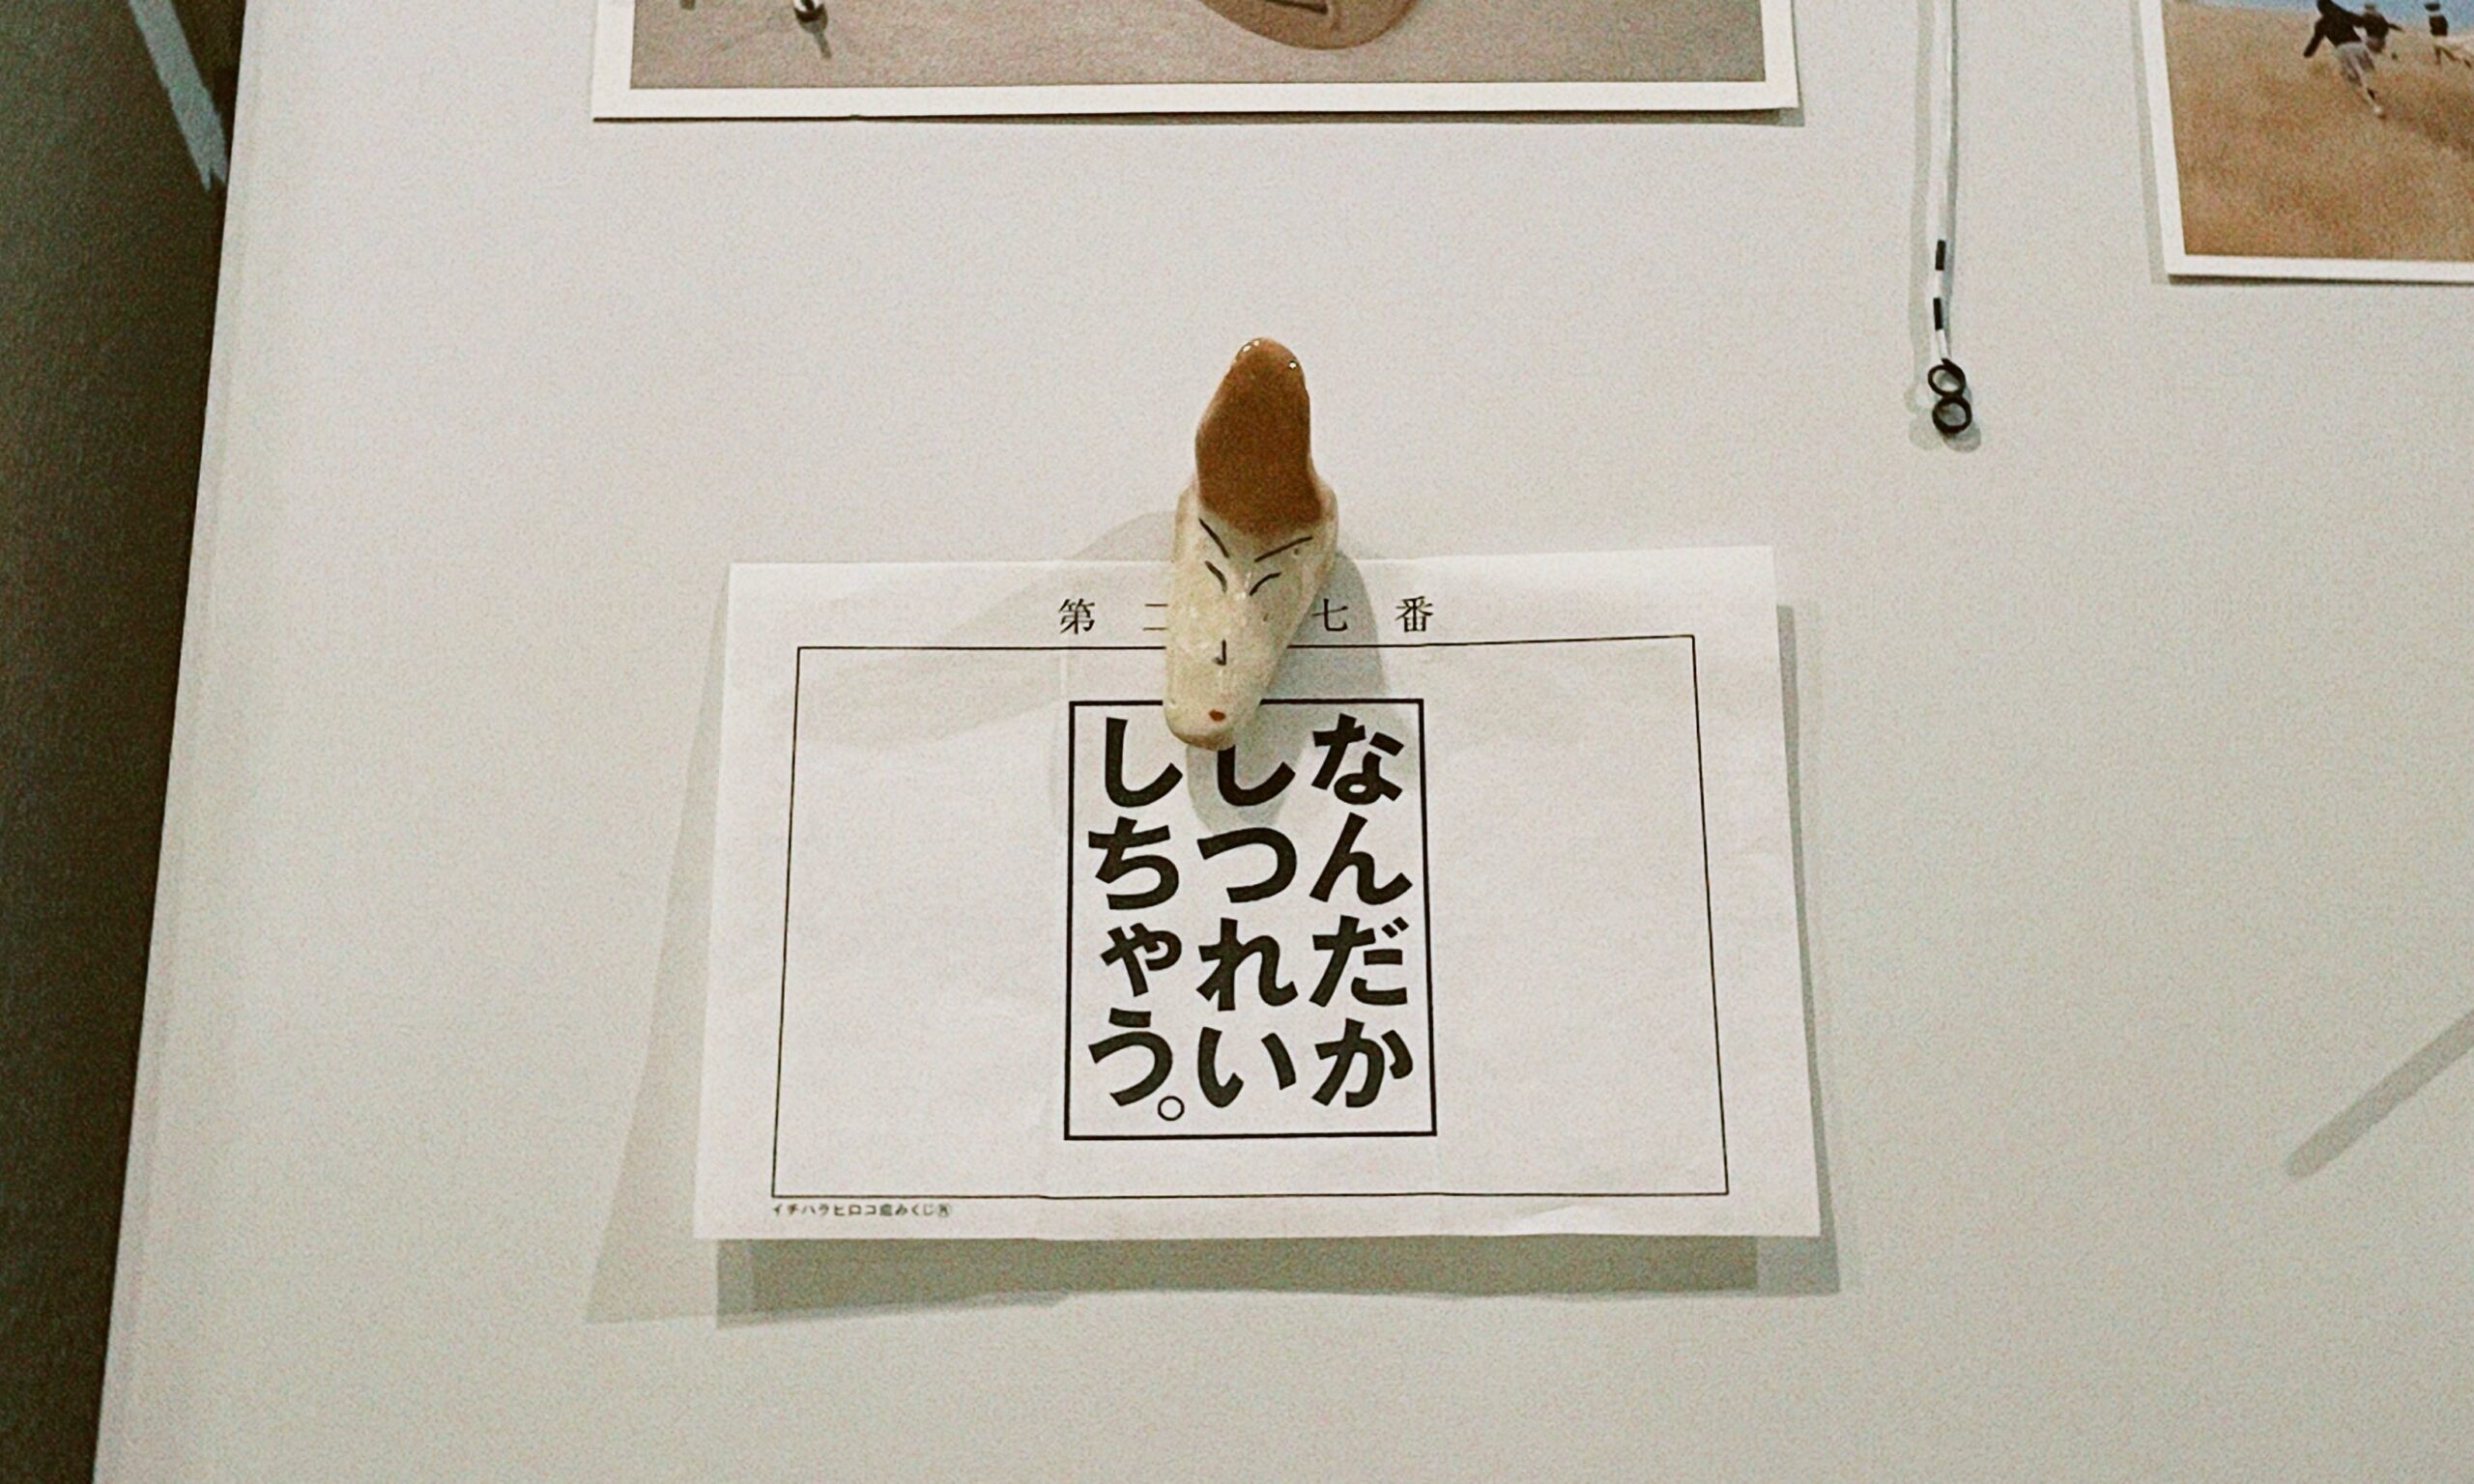 第二 七番
なんだか
しつれい
しちゃう。
イチハラヒロコ恋みくじ